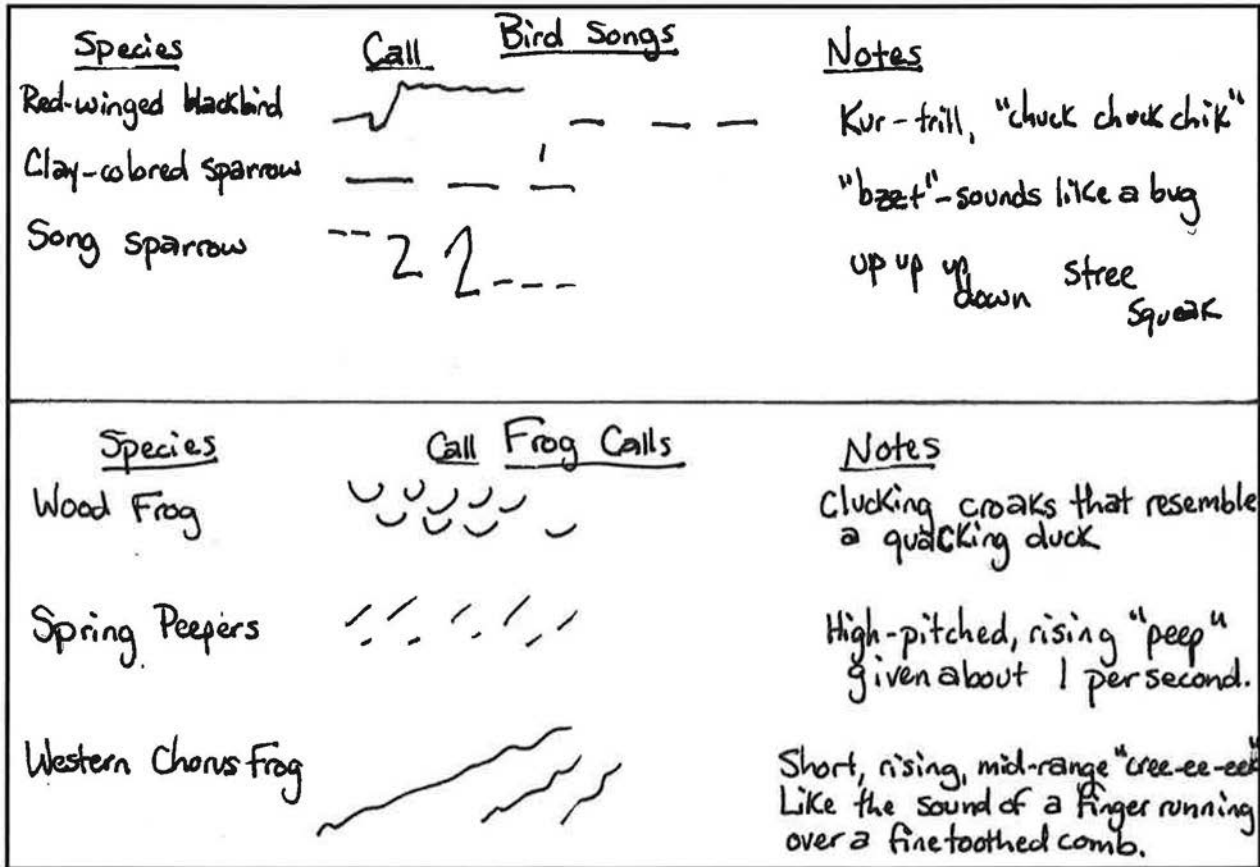 Bird Songs
Species Call Notes
Red-winged blackbird Kur-trill, "chuck chuck chik"
Clay-colored sparrow "bzzt"-sounds like a bug
Song sparrow up up up down stree squeak
Species Call Frog Calls Notes
Wood Frog Clucking croaks that resemble
a quacking duck
Spring Peepers High-pitched, rising "peep"
given about 1 per second.
Western Chorus Frog Short, rising, mid-range "cree-ee-eek"
Like the sound of a finger running
over a fine toothed comb.